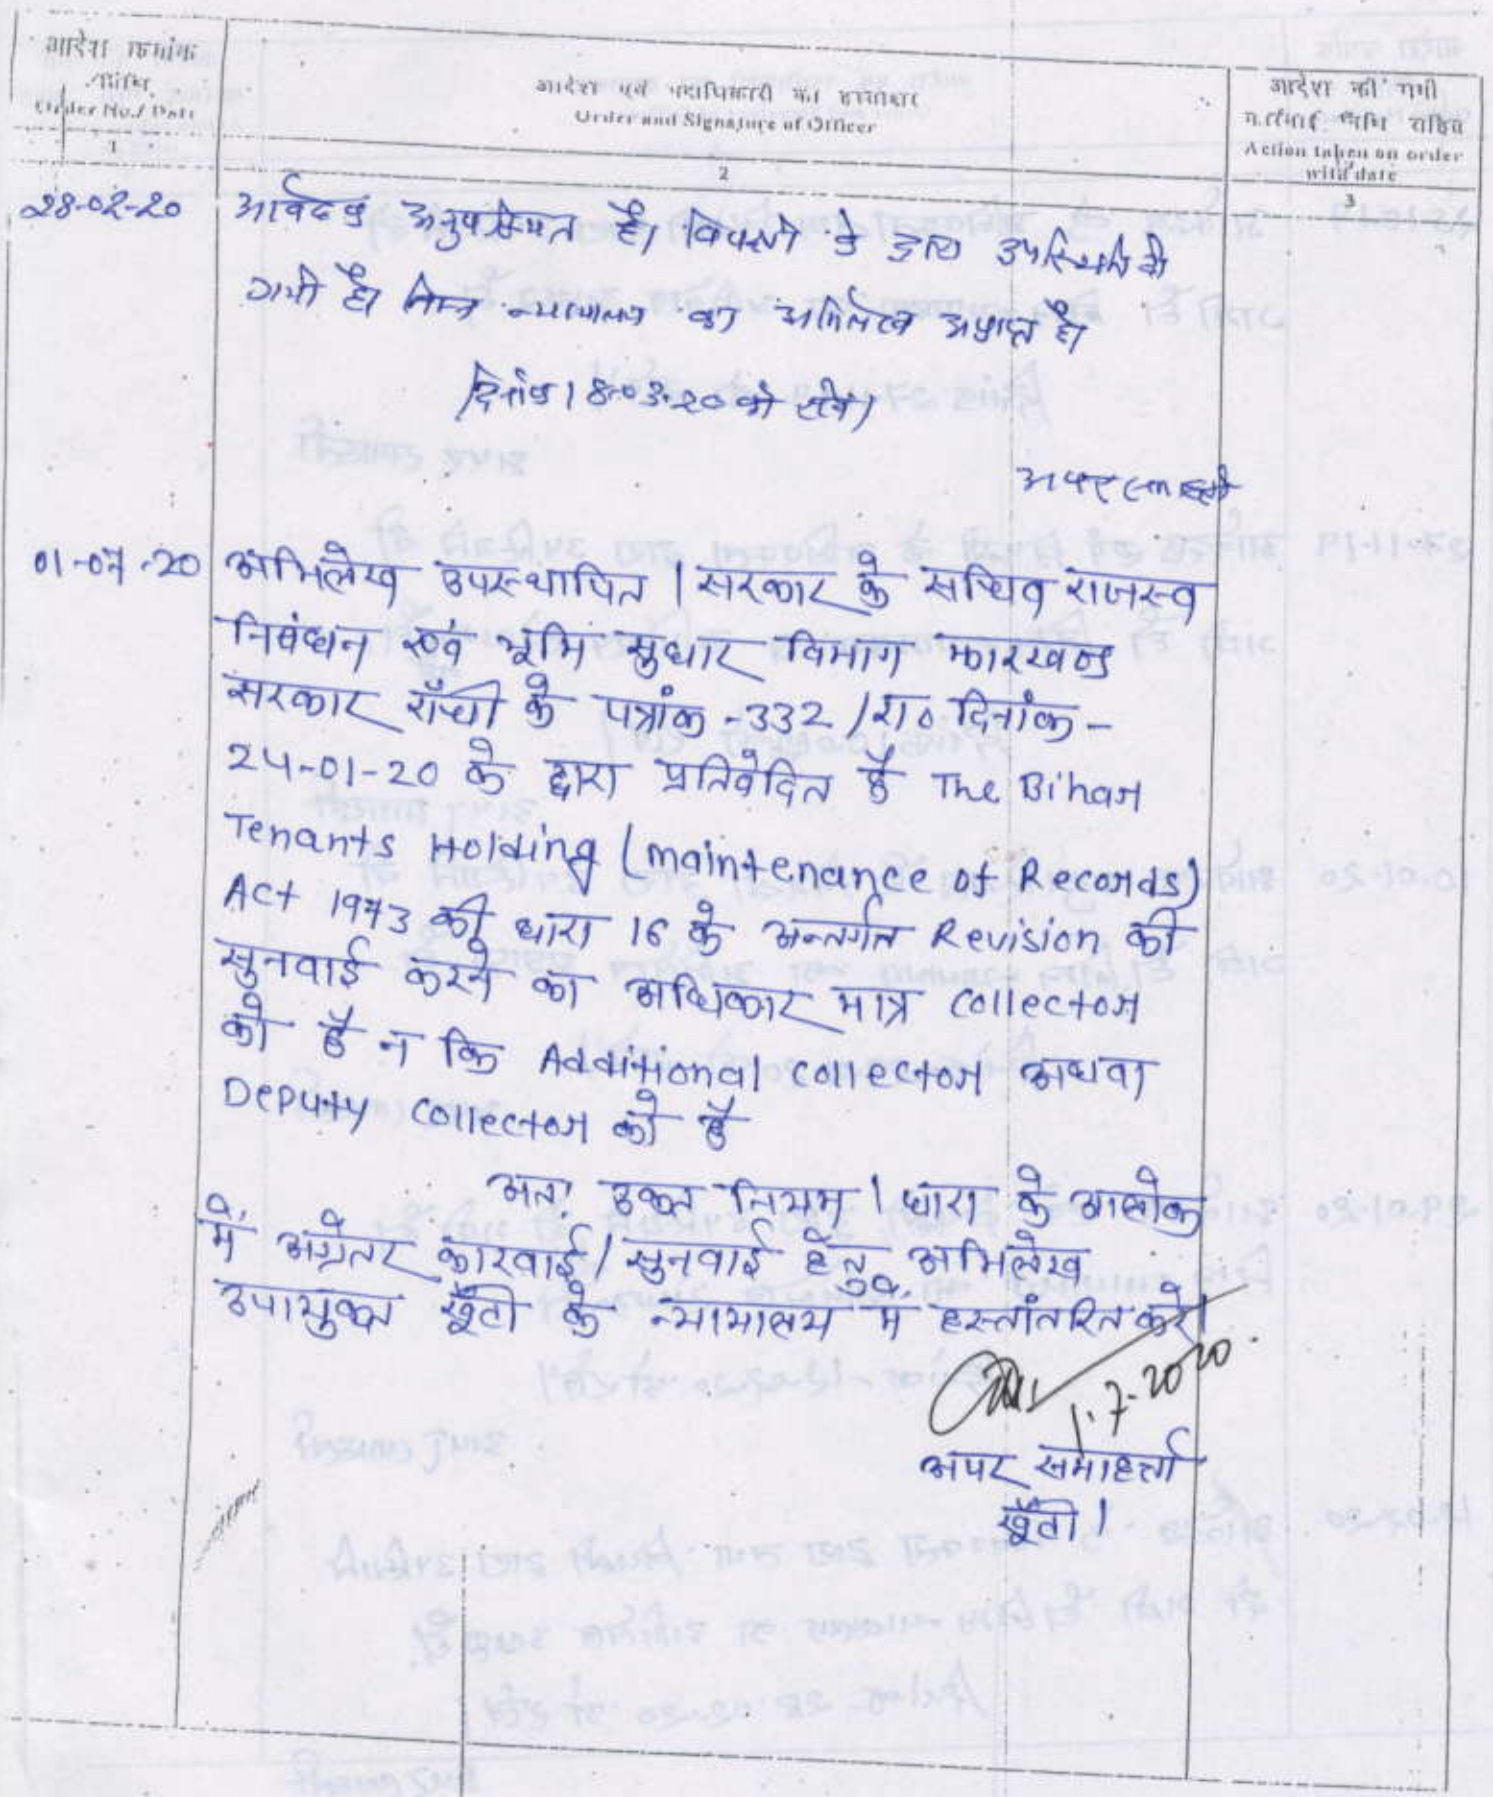 आदेश क्रमांक
तिथि
Order No./ Date
1
आदेश एवं पदाधिकारी का हस्ताक्षर
Order and Signature of Officer
2
आदेश की गयी
कार्रवाई तिथि सहित
Action taken on order
with date
3
28-02-20 आवेदक अनुपस्थित है। विपक्षी के द्वारा उपस्थिति दी
गयी है। निम्न न्यायालय का अभिलेख अप्राप्त है।
दिनांक 18-03-20 को रखें।
अपर समाहर्ता
01-07-20 अभिलेख उपस्थापित । सरकार के सचिव राजस्व
निबंधन एवं भूमि सुधार विभाग झारखण्ड
सरकार राँची के पत्रांक -332 /रा० दिनांक -
24-01-20 के द्वारा प्रतिवेदित है The Bihar
Tenants Holding (maintenance of Records)
Act 1973 की धारा 16 के अन्तर्गत Revision की
सुनवाई करने का अधिकार मात्र collector
को है न कि Additional collector अथवा
Deputy collector को है
अतः उक्त नियम । धारा के आलोक
में अग्रेतर कारवाई / सुनवाई हेतु अभिलेख
उपायुक्त खूँटी के न्यायालय में हस्तांतरित करें।
1.7.2020.
अपर समाहर्त्ता
खूँटी ।